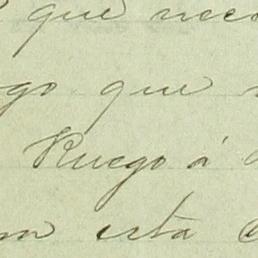 que nece
go que
Ruego á
n esta